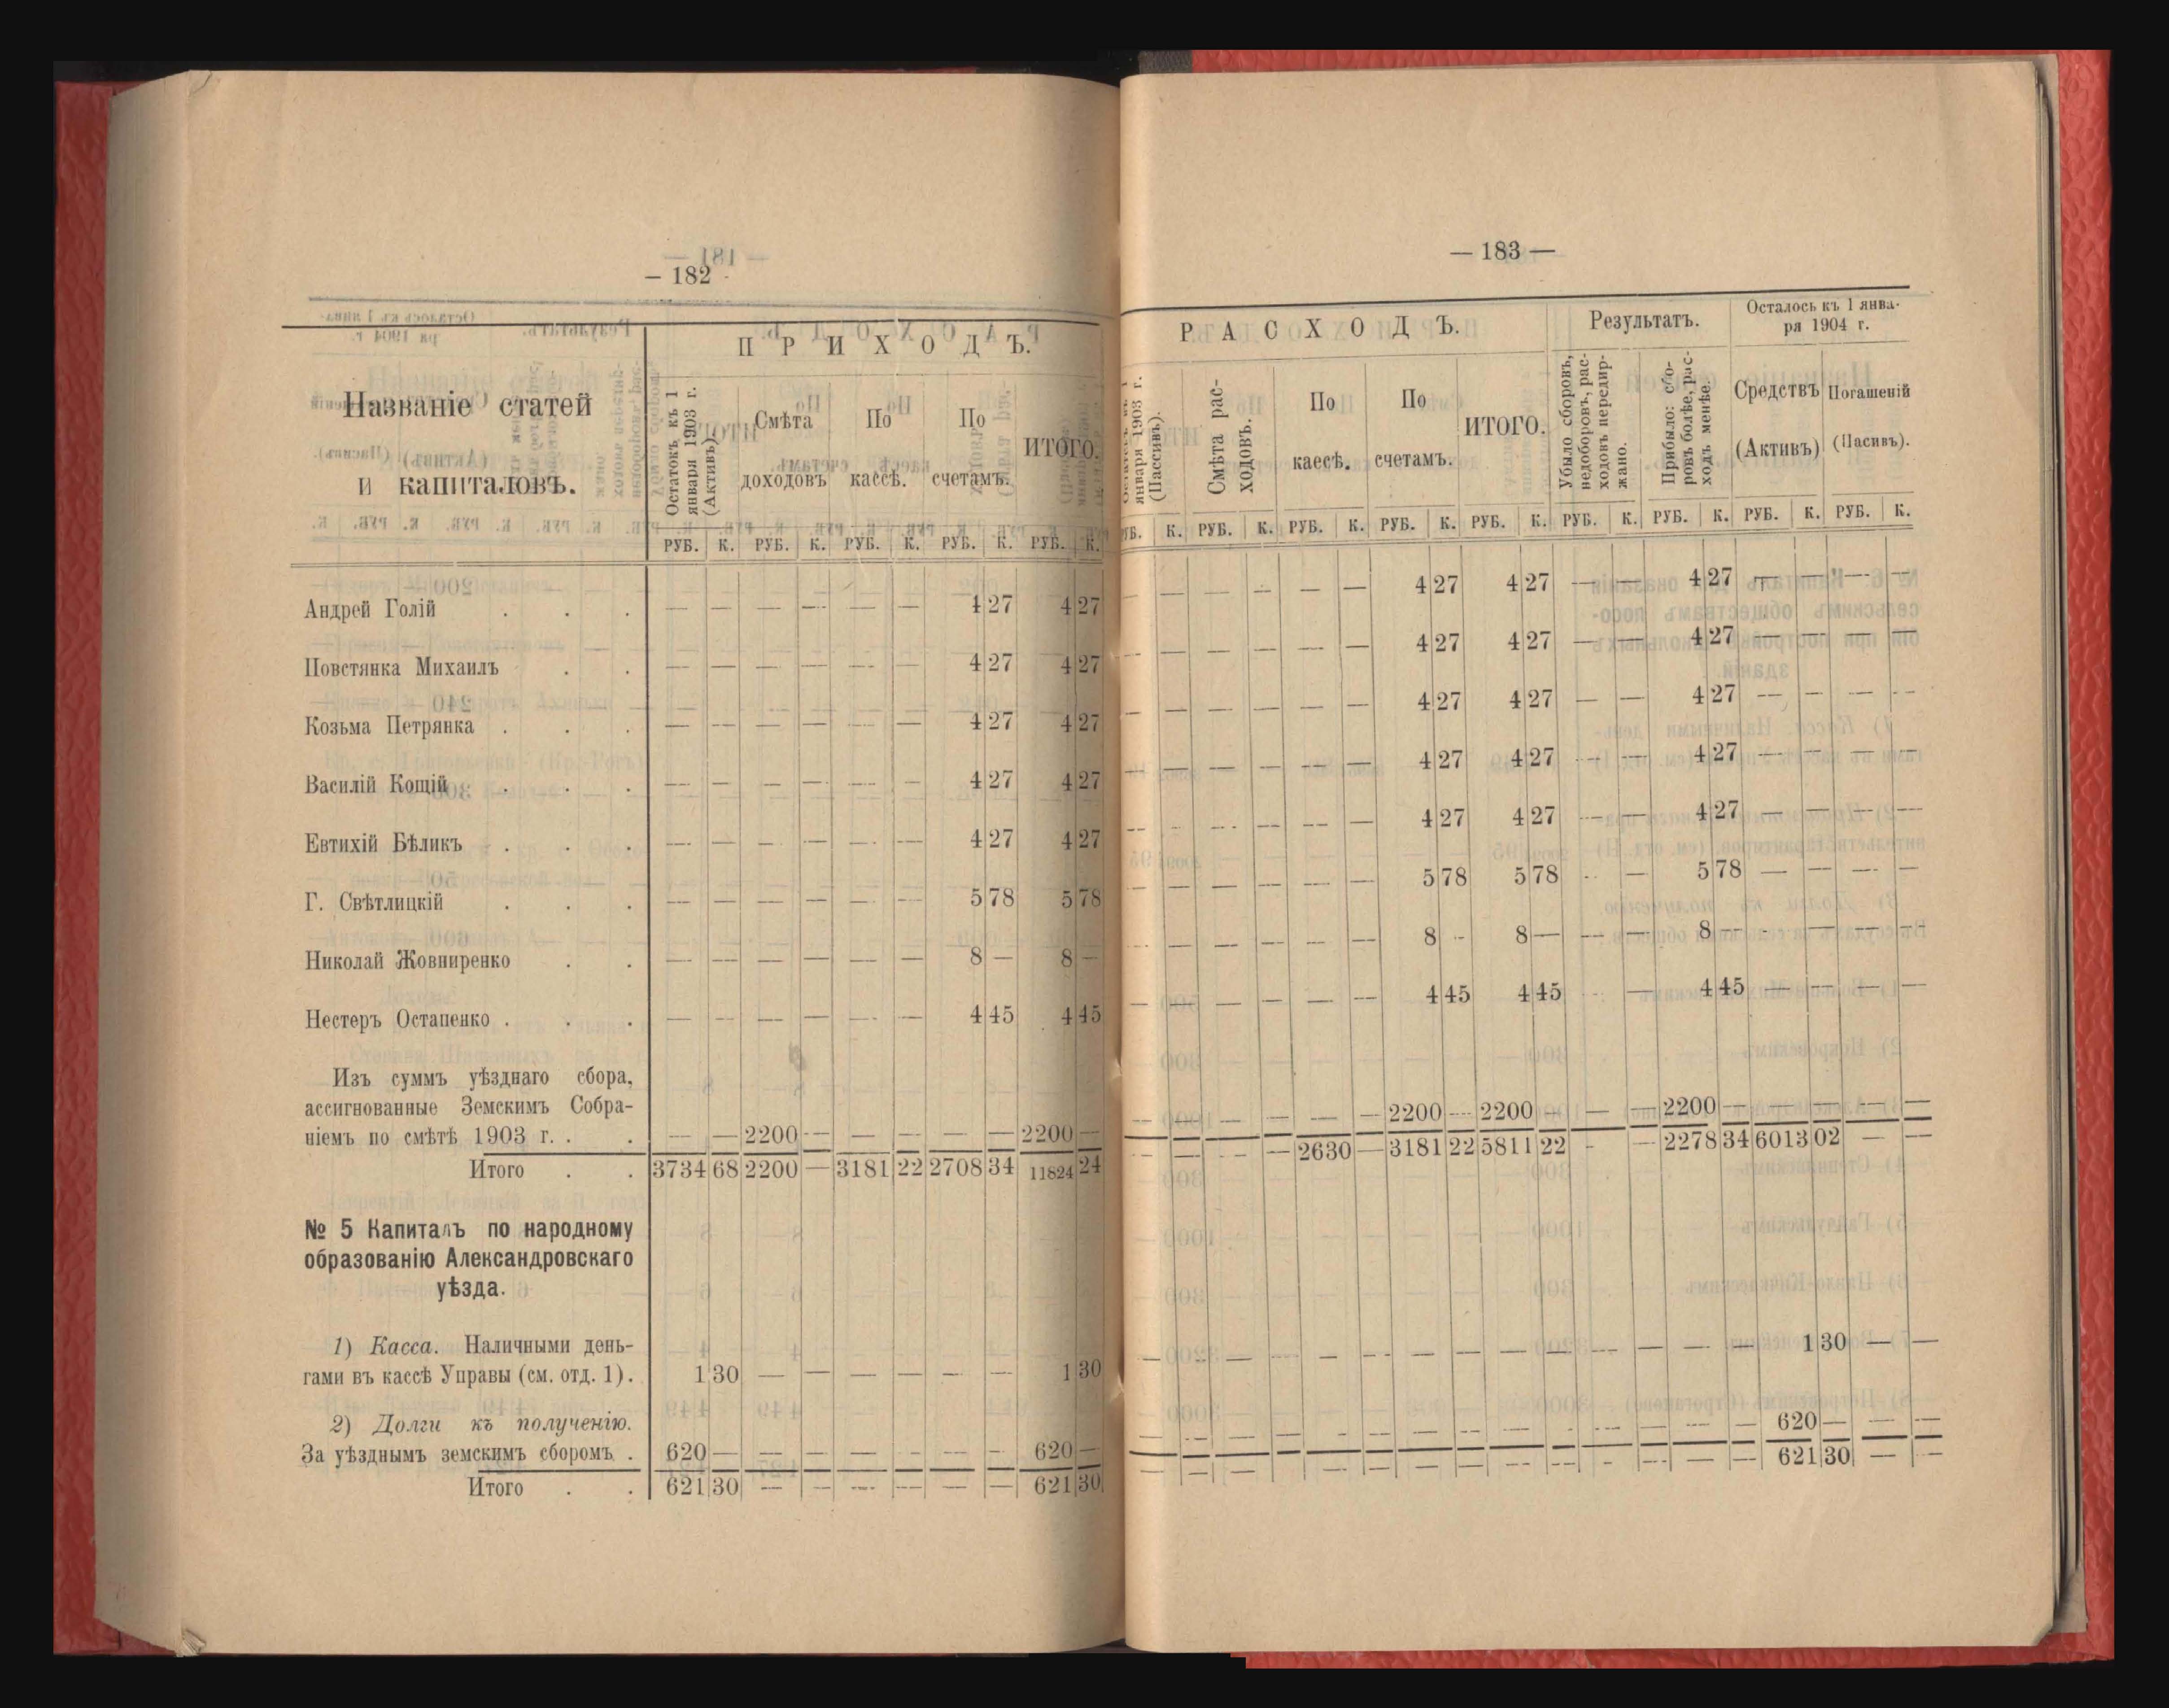 – 182 -
Названіе статей
и капиталовъ.
ПРИХОДЪ.
Остатокъ къ 1
января 1903 г.
(Активъ).
Смѣта
доходовъ
По
кассѣ.
По
счетамъ.
ИТОГО.
РУБ. К. РУБ. К. РУБ. К. РУБ. К. РУБ. К.
Андрей Голій . . . — — — — — — 4 27 4 27
Повстянка Михаилъ . . — — — — — — 4 27 4 27
Козьма Петрянка . . . — — — — — — 4 27 4 27
Василій Кощій . . . — — — — — — 4 27 4 27
Евтихій Бѣликъ . . . — — — — — — 4 27 4 27
Г. Свѣтлицкій . . . — — — — — — 5 78 5 78
Николай Жовниренко . . — — — — — — 8 — 8 —
Нестеръ Остапенко . . . — — — — — — 4 45 4 45
Изъ суммъ уѣзднаго сбора,
ассигнованные Земскимъ Собра-
ніемъ по смѣтѣ 1903 г. . . — — 2200 — — — — — 2200 —
Итого . . 3734 68 2200 — 3181 22 2708 34 11824 24
№ 5 Капиталъ по народному
образованію Александровскаго
уѣзда.
1) Касса. Наличными день-
гами въ кассѣ Управы (см. отд. 1). 1 30 — — — — — — 1 30
2) Долги къ полученію.
За уѣзднымъ земскимъ сборомъ . 620 — — — — — — — 620 —
Итого . . 621 30 — — — — — — 621 30
— 183 —
РАСХОДЪ.
января 1903 г.
(Пассивъ).
Смѣта рас-
ходовъ.
По
кассѣ.
По
счетамъ.
ИТОГО.
Результатъ.
Убыло сборовъ,
недоборовъ, рас-
ходовъ передир-
жано.
Прибыло: сбо-
ровъ болѣе, рас-
ходъ менѣе.
Осталось къ 1 янва-
ря 1904 г.
Средствъ
(Активъ)
Погашеній
(Пасивъ).
К. РУБ. К. РУБ. К. РУБ. К. РУБ. К. РУБ. К. РУБ. К. РУБ. К. РУБ. К.
— — — — — — 4 27 4 27 — — 4 27 — — — —
— — — — — — 4 27 4 27 — — 4 27 — — — —
— — — — — — 4 27 4 27 — — 4 27 — — — —
— — — — — — 4 27 4 27 — — 4 27 — — — —
— — — — — — 4 27 4 27 — — 4 27 — — — —
— — — — — — 5 78 5 78 — — 5 78 — — — —
— — — — — — 8 — 8 — — — 8 — — — — —
— — — — — — 4 45 4 45 — — 4 45 — — — —
— — — — — — 2200 — 2200 — — — 2200 — — — — —
— — — — 2630 — 3181 22 5811 22 — — 2278 34 6013 02 — —
— — — — — — — — — — — — — — 1 30 — —
— — — — — — — — — — — — — — 620 — — —
— — — — — — — — — — — — — — 621 30 — —